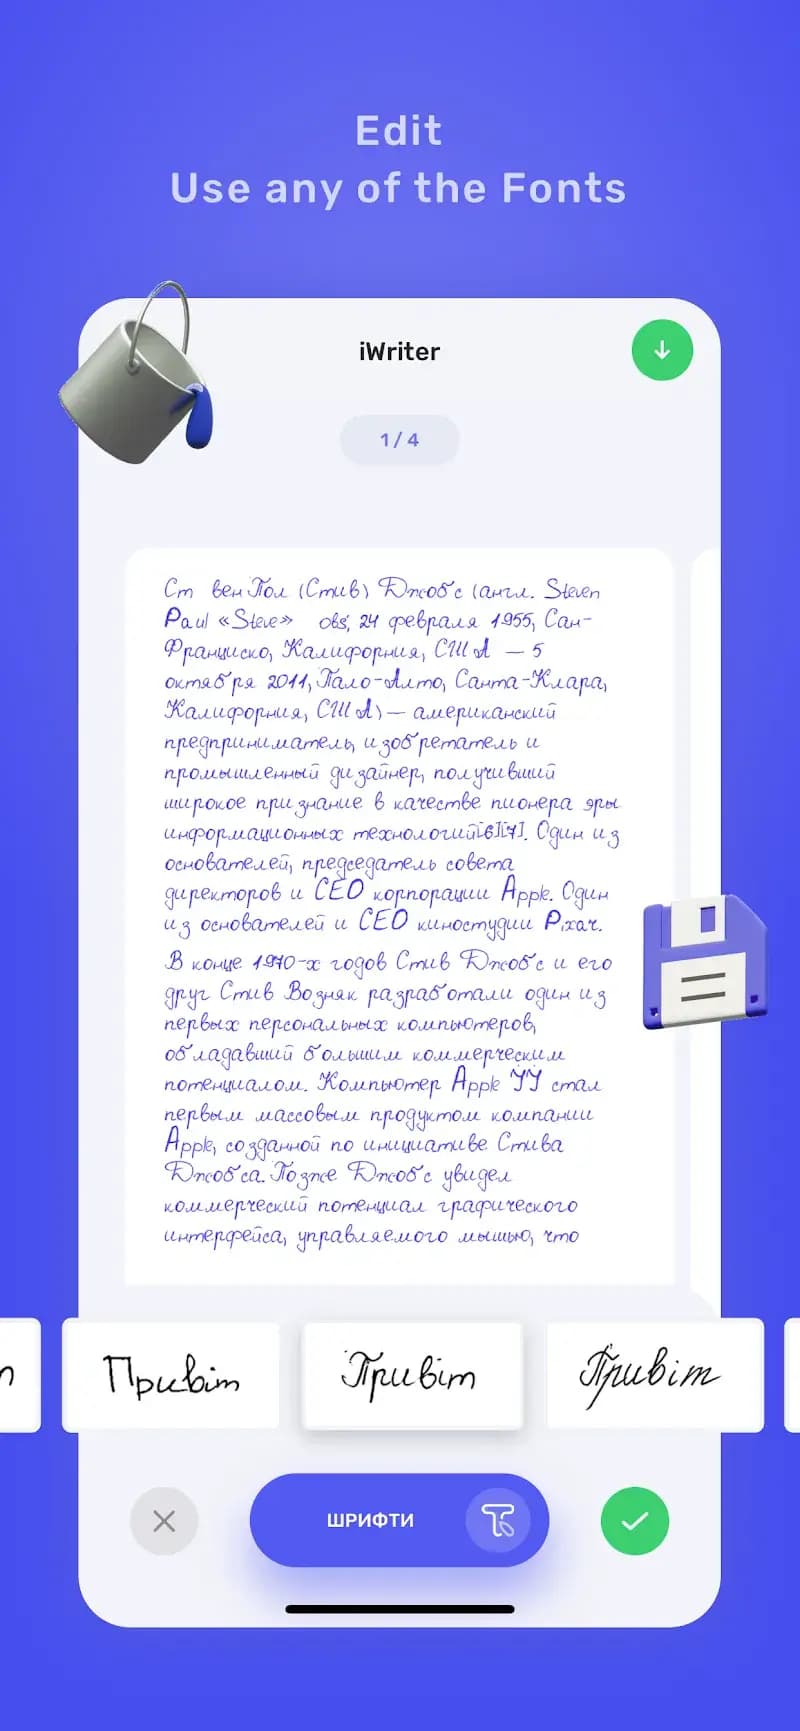 Edit
Use any of the Fonts
iWriter
1 / 4
Ст вен Пол (Стив) Джобс (англ. Steven
Paul «Steve» obs, 24 февраля 1955, Сан-
Франциско, Калифорния, США — 5
октября 2011, Пало-Алто, Санта-Клара,
Калифорния, США) — американский
предприниматель, изобретатель и
промышленный дизайнер, получивший
широкое признание в качестве пионера эры
информационных технологий[6][7]. Один из
основателей, председатель совета
директоров и CEO корпорации Apple. Один
из основателей и CEO киностудии Pixar.
В конце 1970-х годов Стив Джобс и его
друг Стив Возняк разработали один из
первых персональных компьютеров,
обладавший большим коммерческим
потенциалом. Компьютер Apple II стал
первым массовым продуктом компании
Apple, созданной по инициативе Стива
Джобса. Позже Джобс увидел
коммерческий потенциал графического
интерфейса, управляемого мышью, что
Привіт Привіт Привіт
ШРИФТИ